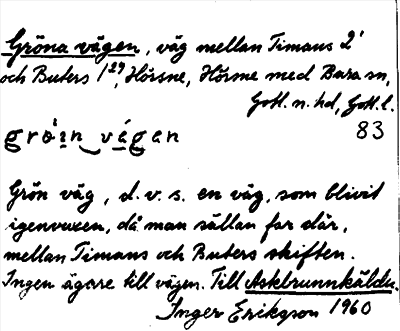 Gröna vägen, väg mellan Timans 2¹
och Buters 1²⁹, Hörsne, Hörsne med Bara sn,
Gotl. n. hd, Gotl. l.
grö̀in vágan 83
Grön väg, d. v. s. en väg, som blivit
igenvuxen, då man sällan far där,
mellan Timans och Buters skiften.
Ingen ägare till vägen. Till Askbrunnkäldu.
Inger Eriksson 1960